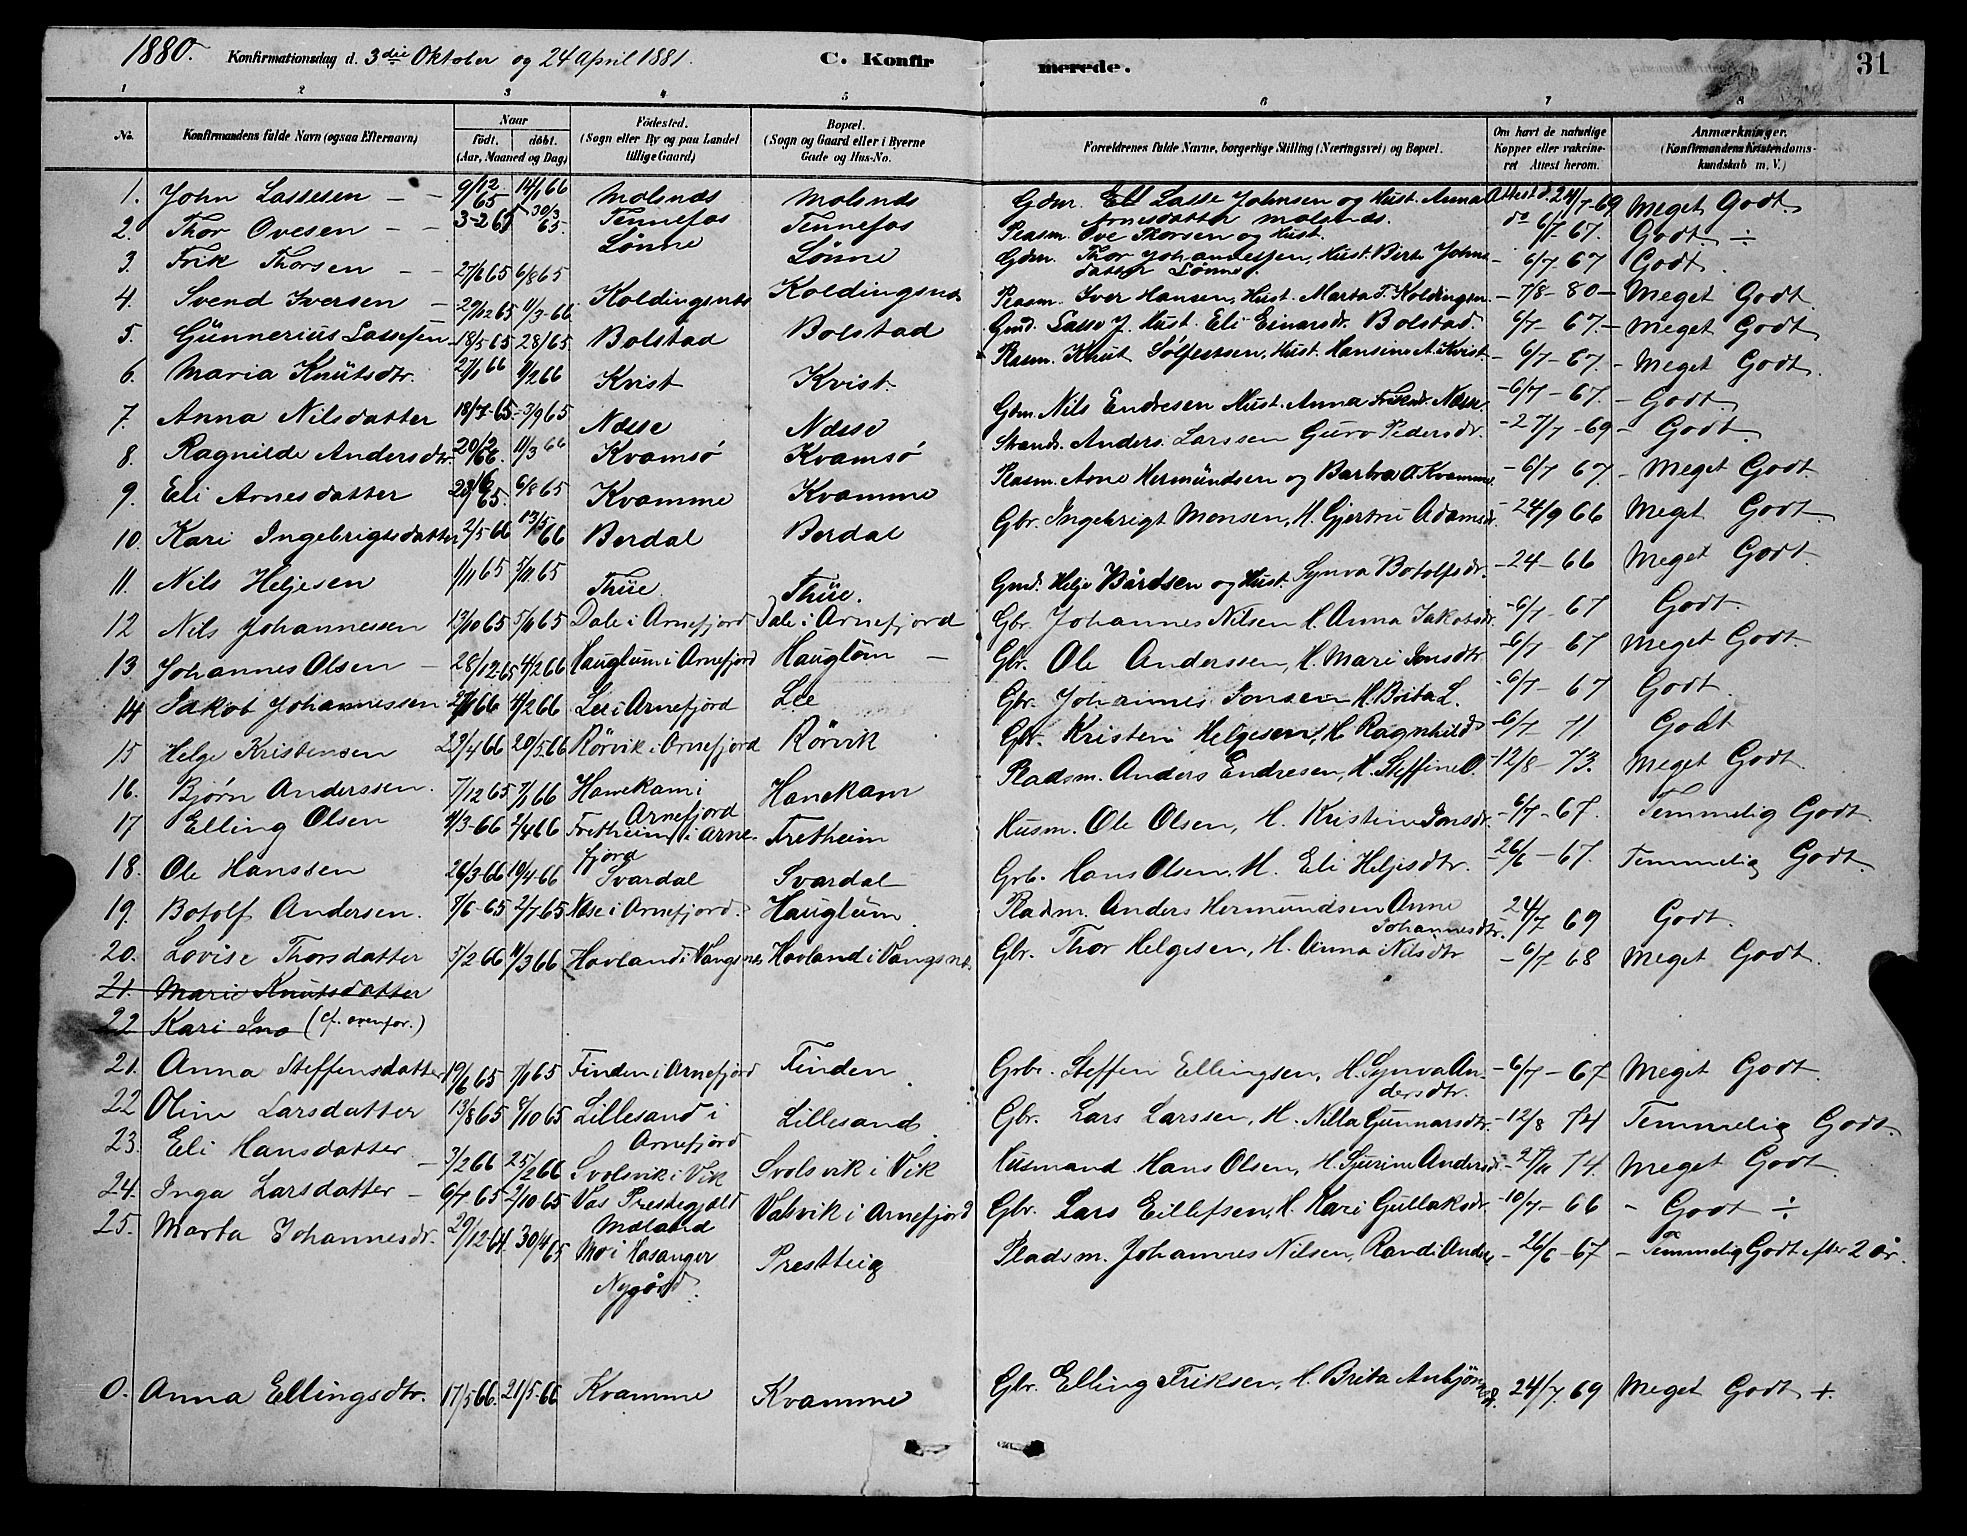 1880. Konfirmationsdag d. 3die Oktober og 24 April 1881. C. Konfir merede. 31
1 2 3 4 5 6 7 8
No. Konfirmandens fulde Navn (ogsaa Efternavn) Naar født. døbt. (Aar, Maaned og Dag) Fødested. (Sogn eller By og paa Landet tillige Gaard) Bopæl. (Sogn og Gaard eller i Byerne Gade og Hus-No. Forældrenes fulde Navne, borgerlige Stilling (Næringsvei) og Bopæl. Om havt de naturlige Kopper eller vakcineret Attest herom. Anmærkninger. (Konfirmandens Kristendomskundskab m. V.)
1. John Lassesen 9/12 65 14/1 66 Molsnds Molsnds Gdm. Lasse Johnsen og Hust. Anna Arnesdatter Molsnds. Attest d. 24/7 69 Meget Godt.
2. Thor Ovesen 3-2 65 30/3 65. Tennefos Tennefos Plasm. Ove Thorsen og Hust. do 6/7 67. Godt ÷
3. Frik Thorsen 27/6 65 6/8 65 Lønne Lønne Gdm. Thor Johannessen, Hust. Birte Johnsdatter Lønne. 6/7 - 67 Godt.
4. Svend Iversen 29/12 65 11/3-66 Koldingsnes Koldingsnes Plasm. Iver Hansen, Hust. Marta T. Koldingsn. 7/8 - 80 - Meget Godt.
5. Gunnerius Lassesen 18/5 65 28/ 65 Bolstad Bolstad Gmd. Lasse J. Hust. Eli Einarsdr. Bolstad. 6/7 - 67. - Meget Godt
6. Maria Knutsdtr. 27/1 66 11/2 66 Kvist Kvist. Plasm. Knut Sølfestsen, Hust. Hansine A. Kvist - 6/7 - 67. - Meget Godt.
7. Anna Nilsdatter 18/7-65 3/9 65 Nesse Nesse Gdm. Nils Endresen Hust. Anna - 6/7 - 67. - Godt.
8. Ragnilde Andersdtr. 20/2 66. 11/3 66 Kvamsø Kvamsø Strands. Anders Larssen Guro Pedersdr. - 27/7 - 69 - Godt.
9. Eli Arnesdatter 65. 6/8 65 Kvamme Kvamme Plasm. Arne Hermundsen og Barbra O. Kvamme - 6/7 67. - Meget Godt.
10. Kari Ingebrigtsdatter 2/5-66 13/5 66 Berdal Berdal Gbr. Ingebrigt Monsen, H. Gjertru Adamsdr. - 24/9 66 Meget Godt.
11. Nils Heljesen 1/11 65 5/11 65 Thüe. Thüe. Gmd. Helje Bårdsen og Hust. Synva Botolfsdr. - 24 - 66 Meget Godt.
12 Nils Johannessen 13/10 65 5/11 65 Dale i Arnefjord Dale i Arnefjord Gbr. Johannes Nilsen H. Anna Jakobsdr. - 6/7 - 67 Godt.
13. Johannes Olsen 28/12-65 4/2 66 Hauglum i Arnefjord Hauglum Gbr. Ole Anderssen, H. Mari Jonsdtr - 6/7 - 67 Meget Godt.
14 Jakob Johannessen 66 11/2 66 Lee i Arnefjord Lee Gbr. Johannes Jonsen H. Brita L. - 6/7 - 67 Godt.
15 Helge Kristensen 29/4 66 20/5-66 Rörvik i Arnefjord Rörvik Gbr. Kristen Helgesen, H. Ragnhild - 6/7 - 71. Godt
16. Bjørn Anderssen. 7/12 65 7/1 66 Hanekam i Arnefjord Hanekam Pladsm. Anders Endresen, H. Steffine O. - 12/8 - 73. Meget Godt.
17 Elling Olsen 11/3-66 2/4 66 Fretheim i Arnefjord Fretheim Husm. Ole Olsen, H. Kristine Jonsdr. - 6/7 - 67. Temmelig Godt.
18. Ole Hanssen 26/3-66 19/4-66 Svardal Svardal Grb. Hans Olsen, H. Eli Heljesdtr. - 26/6 - 67. Temmelig Godt.
19. Botolf Andersen. 7/6-65 2/7-65 Næse i Arnefjord. Hauglum Pladsm. Anders Hermundsen Anne Johannesdtr. 24/7 69 Godt.
20. Lovise Thorsdatter 5/2 66 11/3 66 Hovland i Vangsnes Hovland i Vangsnes. Gbr. Thor Helgesen, H. Anna Nilsdtr - 6/7 - 68 Meget Godt.
21. Marie Knutsdatter
22 Kari Ing (cf. ovenfor.)
21. Anna Steffensdatter 19/6 65 65 Finden i Arnefjord Finden Grbr. Steffen Ellingsen, H. Synva Andersdtr. - 6/7 - 67 Meget Godt.
22 Oline Larsdatter 13/8 65 8/10 65 Lillesand i Arnefjord Lillesand. Gbr. Lars Larssen, H. Nilla Gunnarsdtr. - 12/8 74 Temmelig Godt.
23. Eli Hansdatter 3/2 66 25/2 66 Svolsvik i Vik Svolsvik i Vik Husmand Hans Olsen, H. Sjurine Andersd - 27/11 74. Meget Godt.
24. Inga Larsdatter 6/7 65 2/10 65 Vos Prestegjeld Mæland Valsvik i Arnefjord Gbr. Lars Eillefsen, H. Kari Gullaksdr. - 10/7 - 66 - Godt ÷
25. Marta Johannesdr. 29/12-64 30/4 65 Mo i Hosanger Nygård. Prestteig Pladsm. Johannes Nilsen, Randi Anders - 26/6 - 67 - Temmelig Godt efter 2 år.
0. Anna Ellingsdtr. 17/5 66. 21/5-66 Kvamme Kvamme Gbr. Elling Friksen, H. Brita Anbjörnsd. 24/7. 69 Meget Godt +.